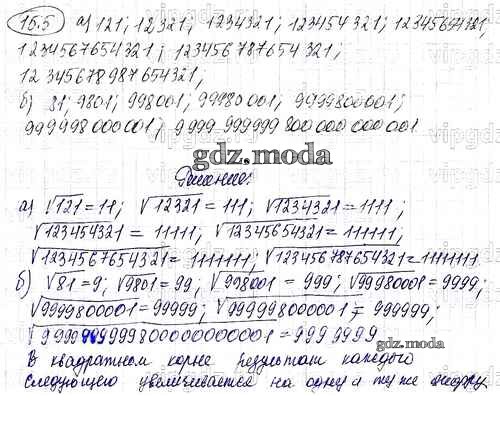 16.5 а) 121; 12321; 1234321; 123454321; 12345654321;
1234567654321; 123456787654321;
12345678987654321;
б) 81; 9801; 998001; 99980001; 9999800001;
999998000001; 9999 999999 800 000 000 001
gdz.moda
Решение:
а) √121 = 11; √12321 = 111; √1234321 = 1111;
√123454321 = 11111; √12345654321 = 111111;
√1234567654321 = 1111111; √123456787654321 = 11111111
б) √81 = 9; √9801 = 99; √998001 = 999; √99980001 = 9999;
√9999800001 = 99999; √99999800001 = 999999;
= 9999999
gdz.moda
В квадратном корне результат каждого
следующего увеличивается на одну и ту же цифру